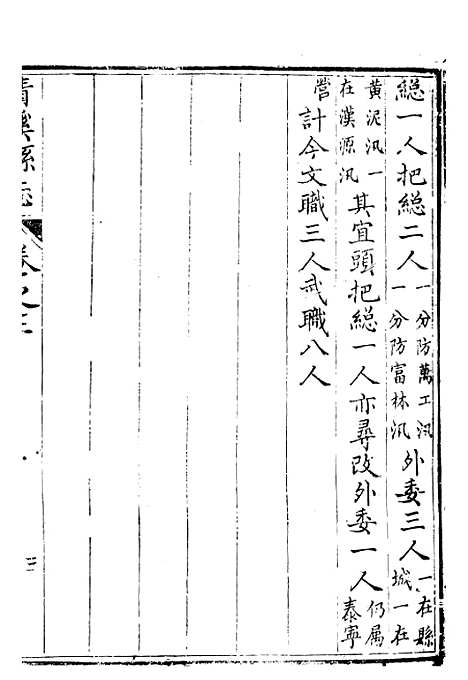 總一人把總二人一分防萬工汛一分防富林汛外委三人一在縣城一在
黃泥汛一在漢源汛其宜頭把總一人亦尋改外委一人仍属泰寧
營計今文職三人武職八人
清溪縣志 卷之三
三